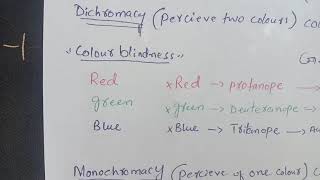 Dichromacy (percieve two colours)
"Colour blindness"
(Gn
Red ×Red → protanope →
Green ×green → Deuteranope →
Blue ×Blue → Tritanope → A
Monochromacy (percieve of one colour)